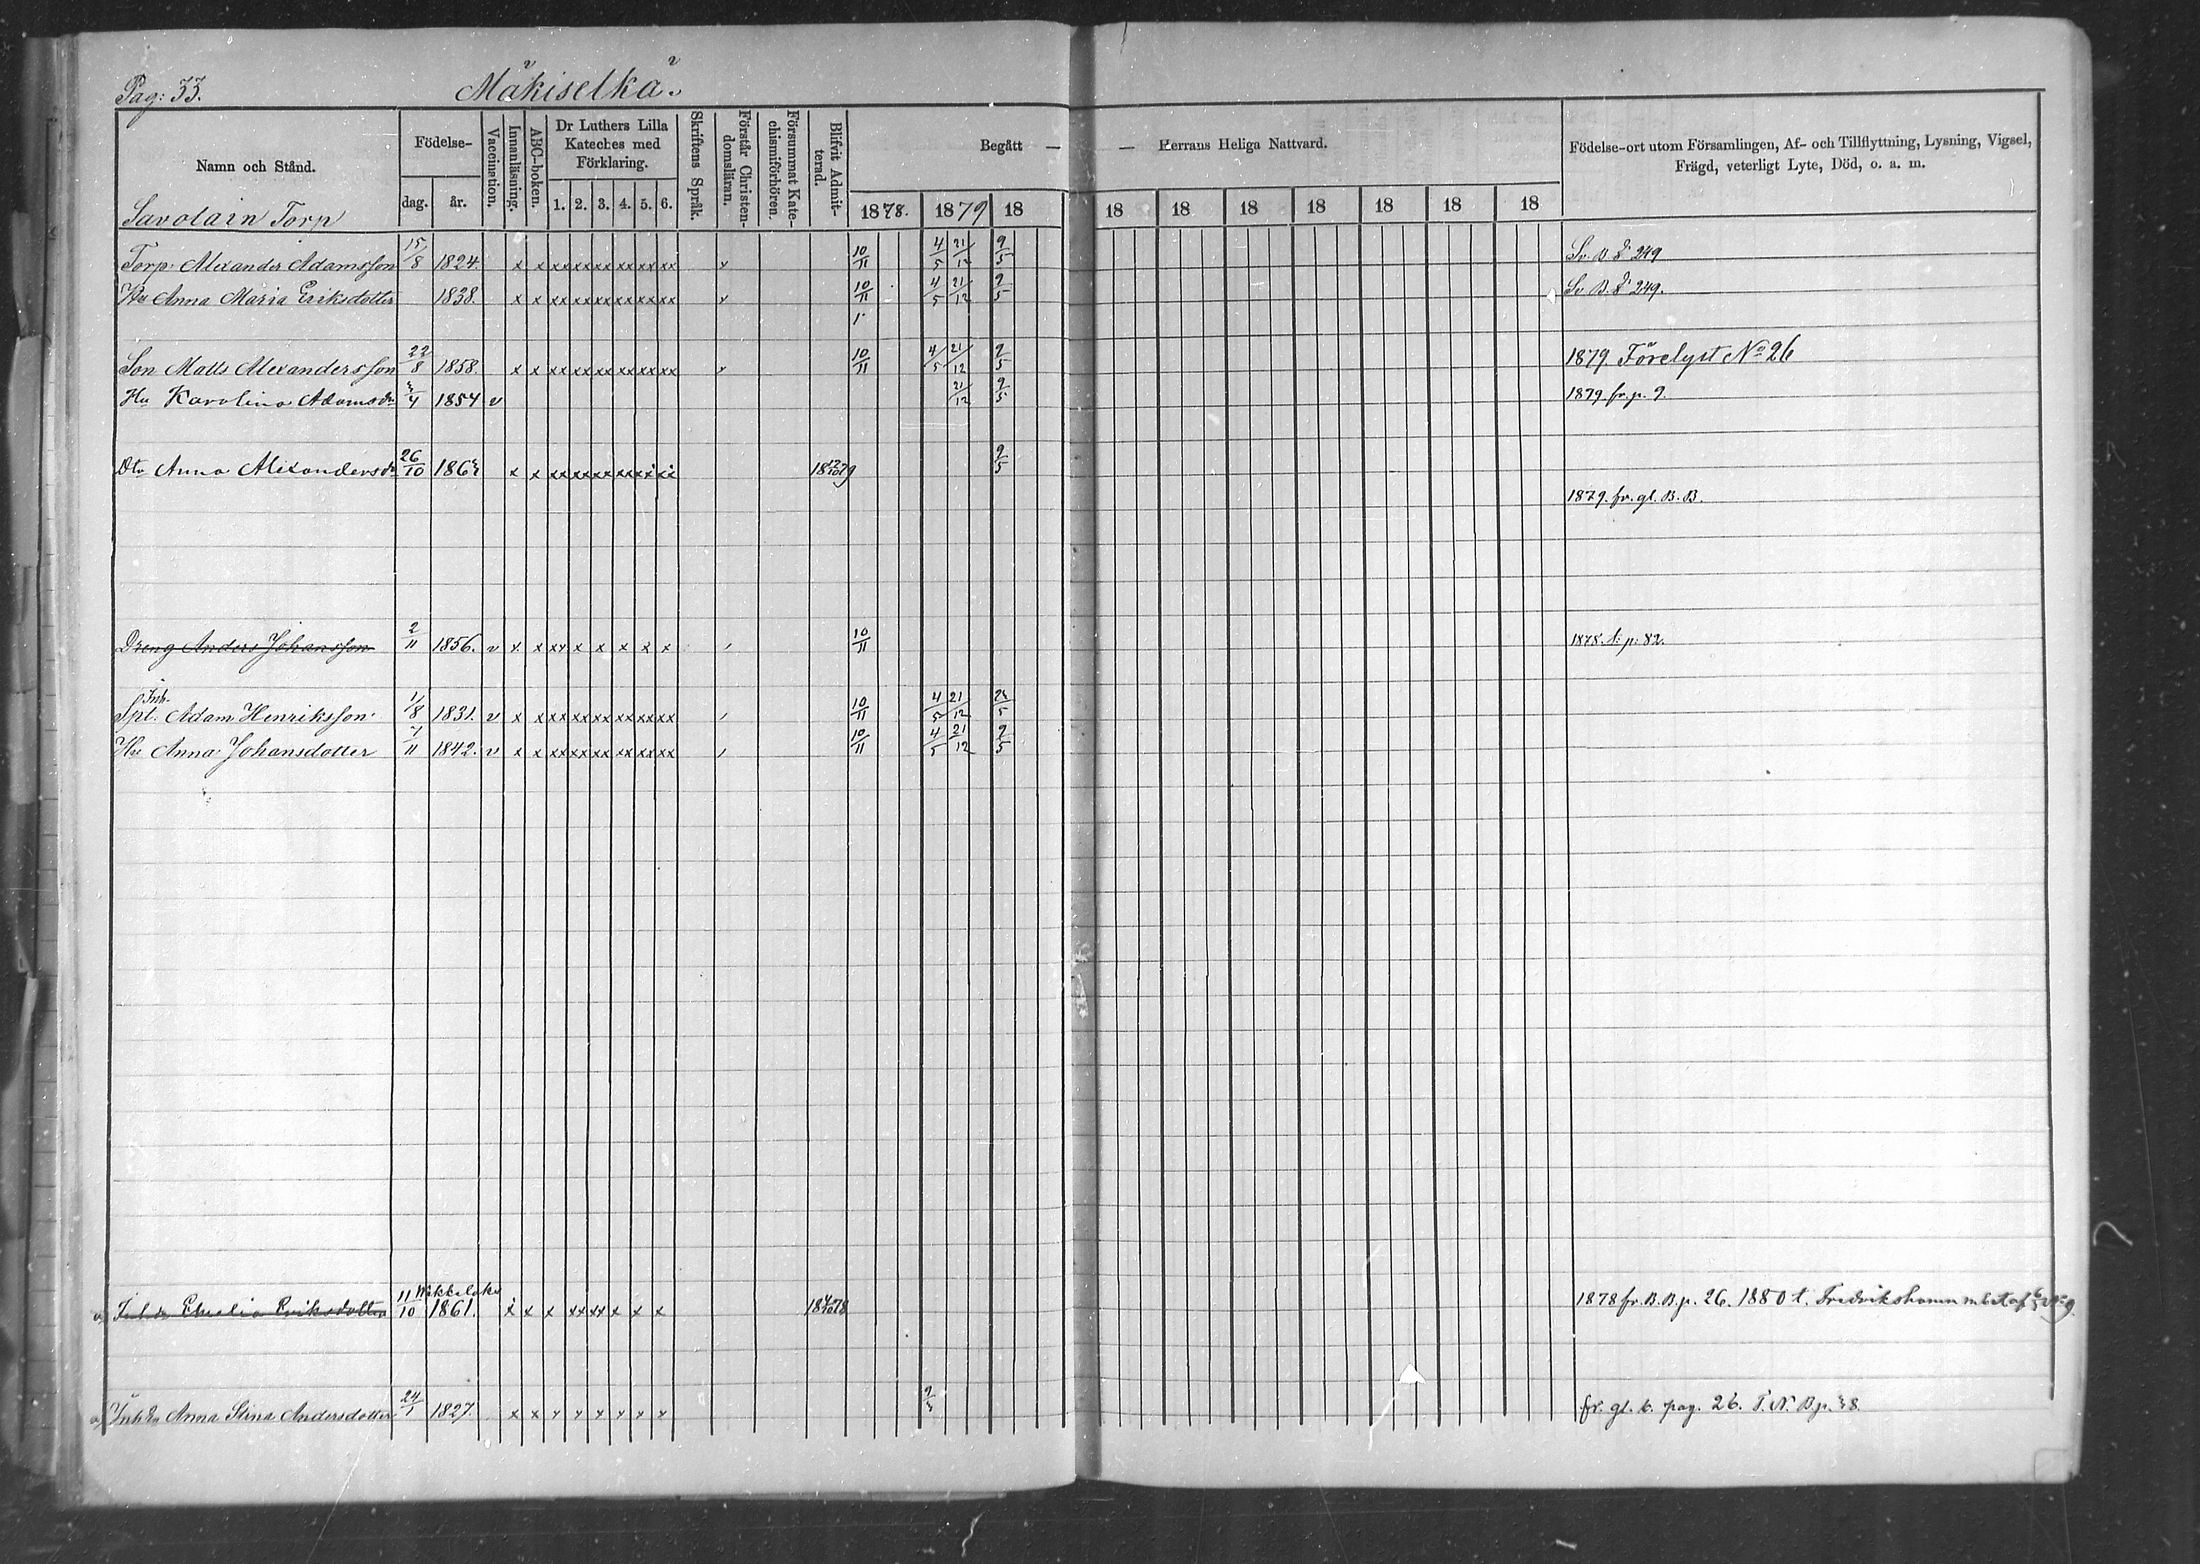 Pag: 33.
Mäkiselkä.
Namn och Stånd.
Födelse-
dag.
år.
Vaccination.
Innanläsning.
ABC-boken.
Dr Luthers Lilla
Kateches med
Förklaring.
1. 2. 3. 4. 5. 6.
Skriftens Språk.
Förstår Christen-
domsläran.
Försummat Kate-
chismiförhören.
Blifvit Admit-
terad.
Begått — — Herrans Heliga Nattvard.
1878. 1879 18 18 18 18 18 18 18 18
Födelse-ort utom Församlingen, Af- och Tillflyttning, Lysning, Vigsel,
Frägd, veterligt Lyte, Död, o. a. m.
Savolain Torp
Torp. Alexander Adamsson 15/8 1824. x x xx xx xx xx xx xx 10/11 4/5 21/12 9/5 Sv. B. 249
Hu Anna Maria Eriksdotter 1838. x x xx xx xx xx xx xx 10/11 4/5 21/12 9/5 Sv. B. 249.
Son Matts Alexandersson 22/8 1858. x x xx xx xx xx xx xx 10/11 4/5 21/12 9/5 1879 Förelyst No 26
Hu Karolina Adamsdr /4 1854 v 21/12 9/5 1879 fr. p. 9.
Dtr Anna Alexandersdr 26/10 x x xx xx xx xx xx xx 9/5
1879. fr. gl. B. B.
Dreng Anders Johansson 2/11 1856. v x x xx x x x x x 10/11 p. 82.
Inh.
Spt. Adam Henriksson 1/8 1831. v x x xx xx xx xx xx xx 10/11 4/5 21/12
Hu Anna Johansdotter 7/11 1842. v x x xx xx xx xx xx xx 10/11 4/5 21/12 9/5
Eriksdotter 11/10 1861. x x x xx xx x x x 1878 fr. B. B. p. 26. 1880 t. Fredrikshamn m. bet. af
Anna Stina Andersdotter 24/1 1827. x x x x x x x x fr. gl. b. pag. 26. T. N. B. p.